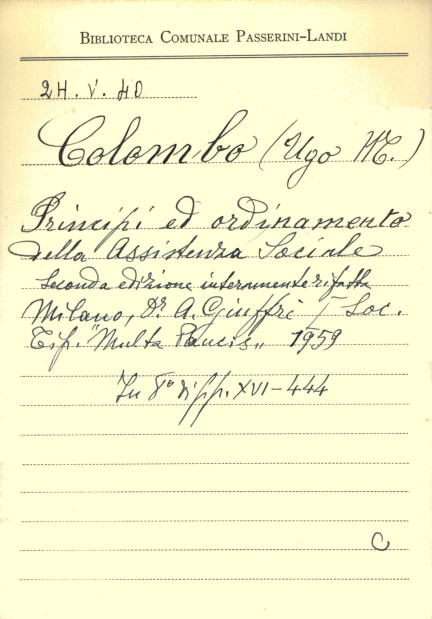 BIBLIOTECA COMUNALE PASSERINI-LANDI
24. V. 40
Colombo (Ugo M.)
Principi ed ordinamento
della Assistenza Sociale
seconda edizione interamente rifatta
Milano, Dr. A. Giuffrè / Soc.
Tip. "Multa Paucis„ 1959
In 8° di pp. XVI-444
C